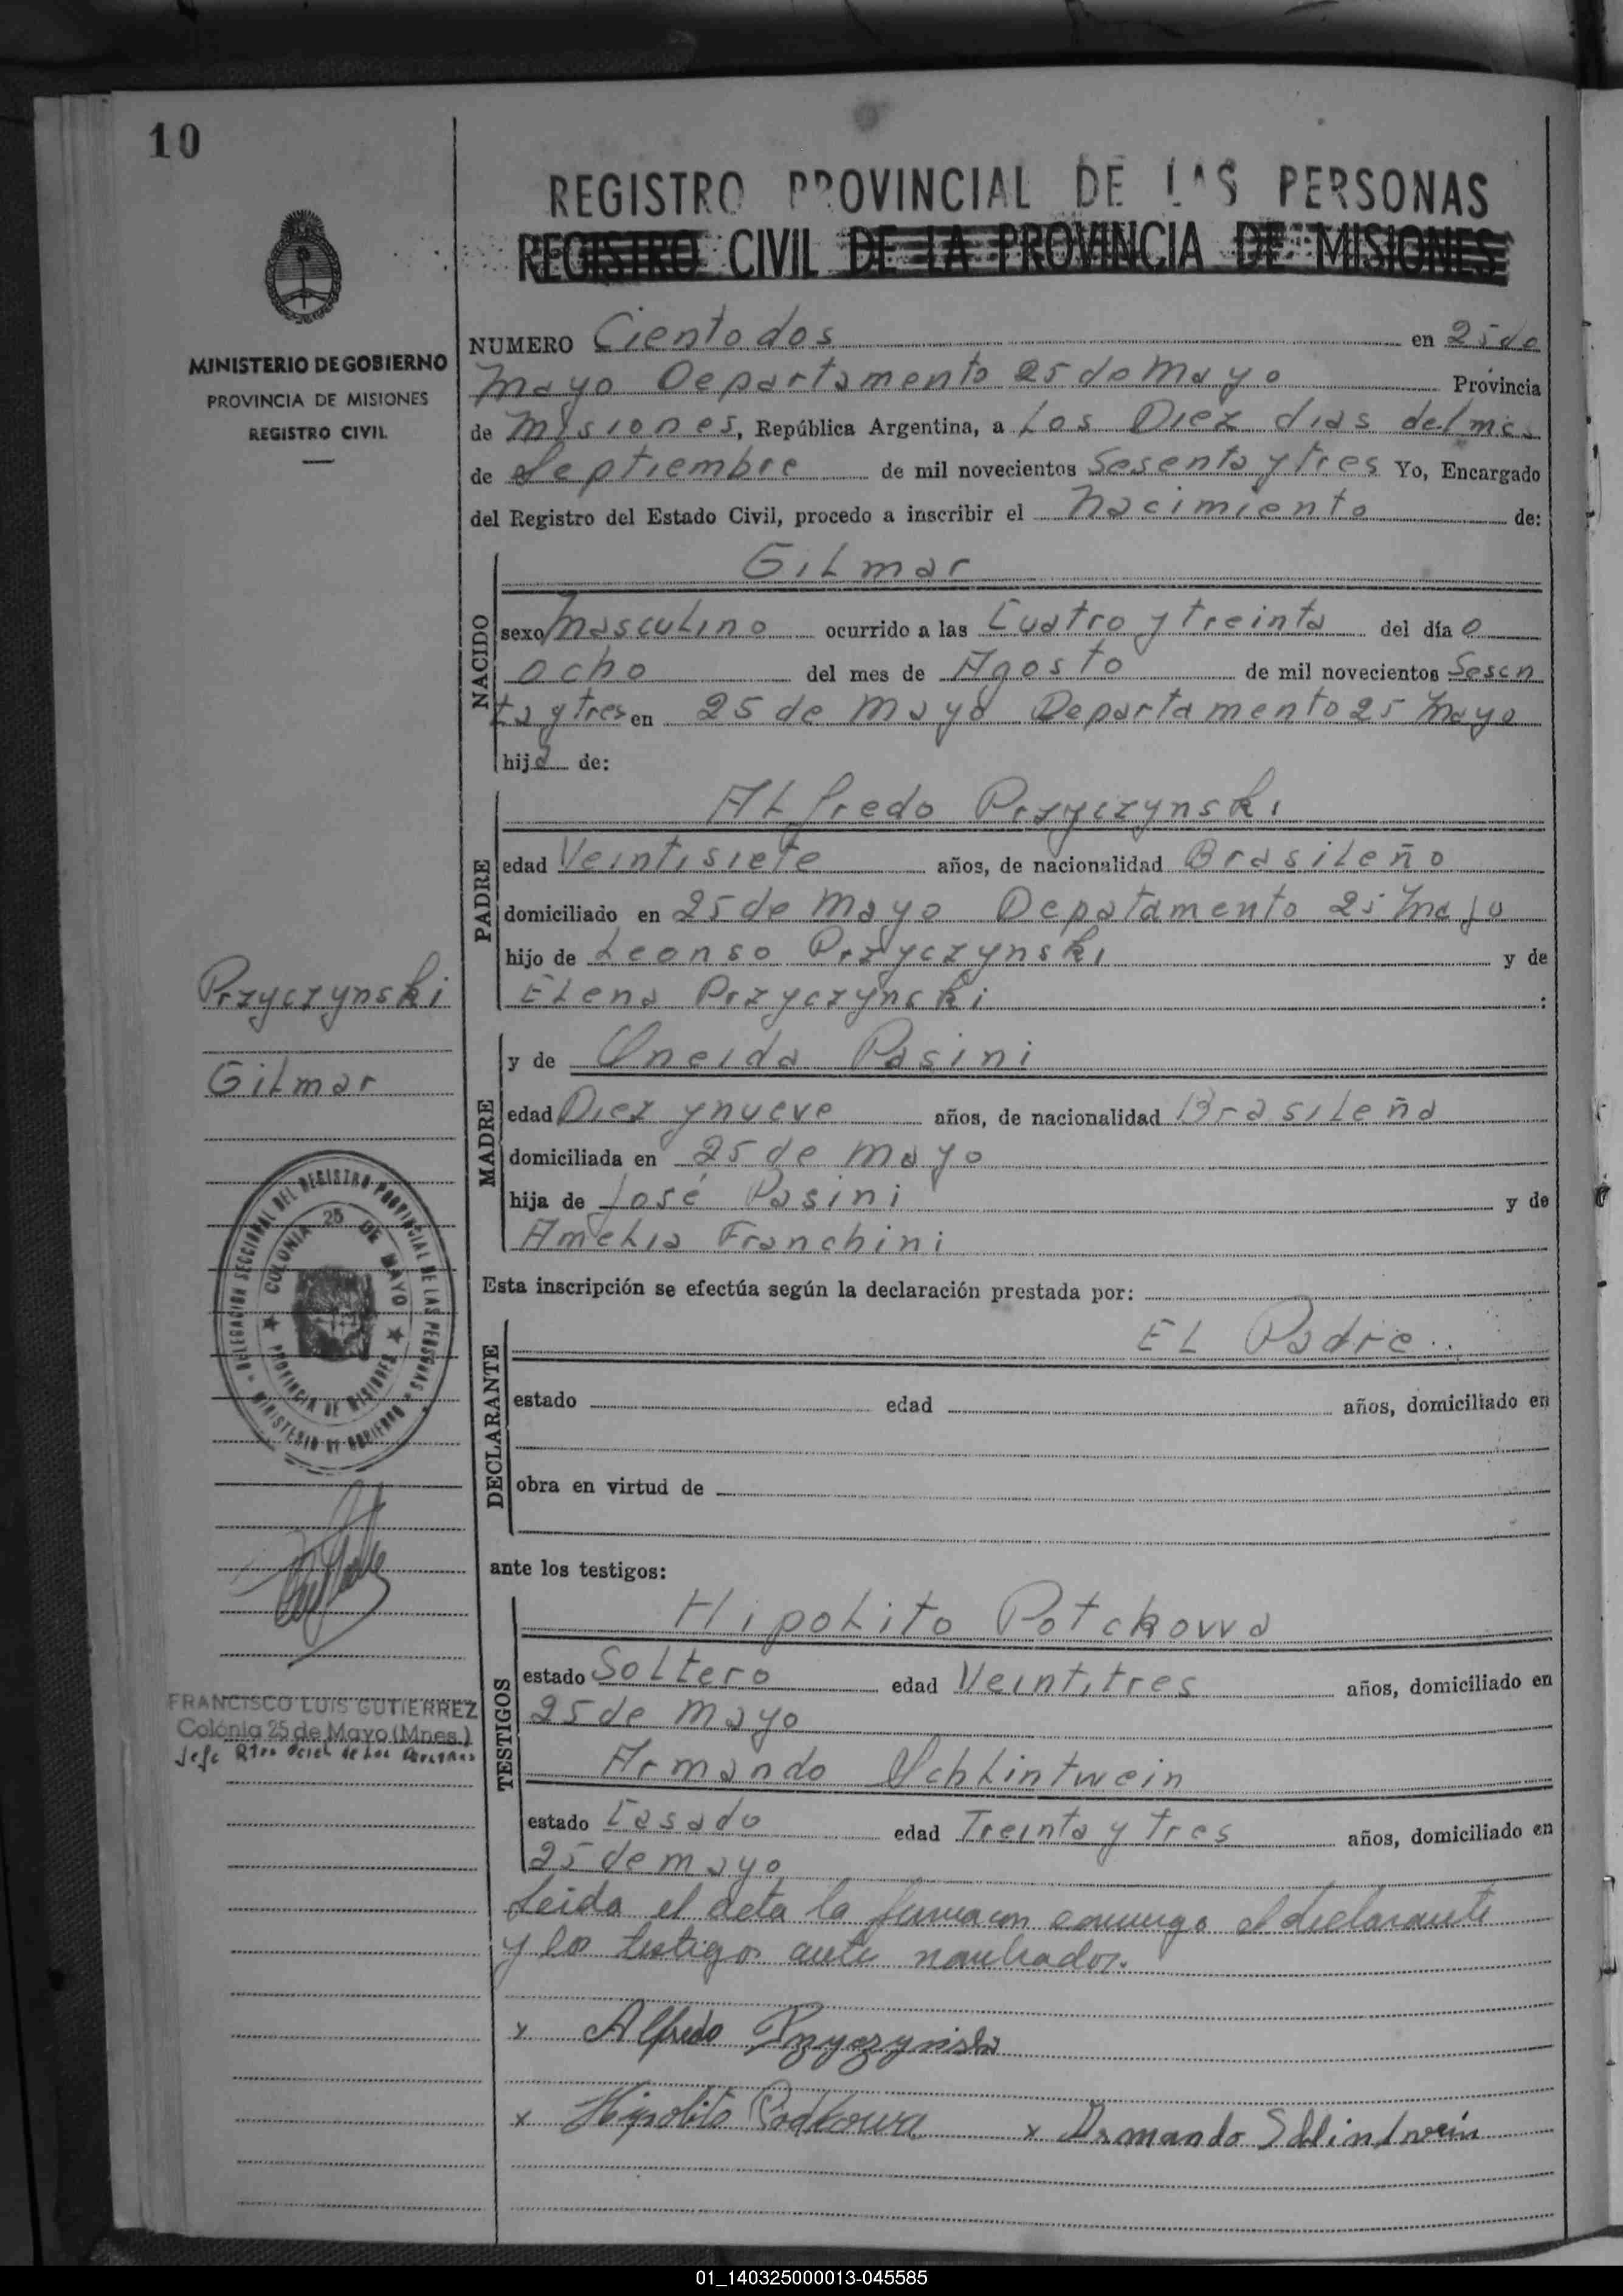 10
REGISTRO PROVINCIAL DE LAS PERSONAS
REGISTRO CIVIL DE LA PROVINCIA DE MISIONES
MINISTERIO DE GOBIERNO
PROVINCIA DE MISIONES
REGISTRO CIVIL
NUMERO Ciento dos en 25 de
Mayo Departamento 25 de Mayo Provincia
de Misiones, República Argentina, a Los Diez dias del mes
de Septiembre de mil novecientos Sesenta y tres Yo, Encargado
del Registro del Estado Civil, procedo a inscribir el Nacimiento de:
NACIDO
Gilmar
sexo Masculino ocurrido a las Cuatro y treinta del día O
ocho del mes de Agosto de mil novecientos Sesen
ta y tres en 25 de Mayo Departamento 25 Mayo
hijo de:
PADRE
Alfredo Przyczynski
edad Veintisiete años, de nacionalidad Brasileño
domiciliado en 25 de Mayo Depatamento 25 Mayo
hijo de Leonso Przyczynski y de
Elena Przyczynski :
Przyczynski
Gilmar
MADRE
y de Oneida Pasini
edad Diez ynueve años, de nacionalidad Brasileña
domiciliada en 25 de Mayo
hija de José Pasini y de
Amelia Franchini
Esta inscripción se efectúa según la declaración prestada por:
DECLARANTE
El Padre.
estado edad años, domiciliado en
obra en virtud de
DELEGACION SECCIONAL DEL REGISTRO PROVINCIAL DE LAS PERSONAS
MINISTERIO DE GOBIERNO
COLONIA 25 DE MAYO
PROVINCIA DE MISIONES
ante los testigos:
TESTIGOS
Hipolito Potckowa
estado Soltero edad Veintitres años, domiciliado en
25 de Mayo
Armando Schlintwein
estado Casado edad Treinta y Tres años, domiciliado en
25 de mayo
FRANCISCO LUIS GUTIERREZ
Colonia 25 de Mayo (Mnes.)
Jefe de Las Personas
Leida el acta la firma con conmigo el declarante
y los testigos ante nombrados.
x Alfredo Przyczynski
x Hipolito Podkowa x Armando Schlindwein
01_140325000013-045585